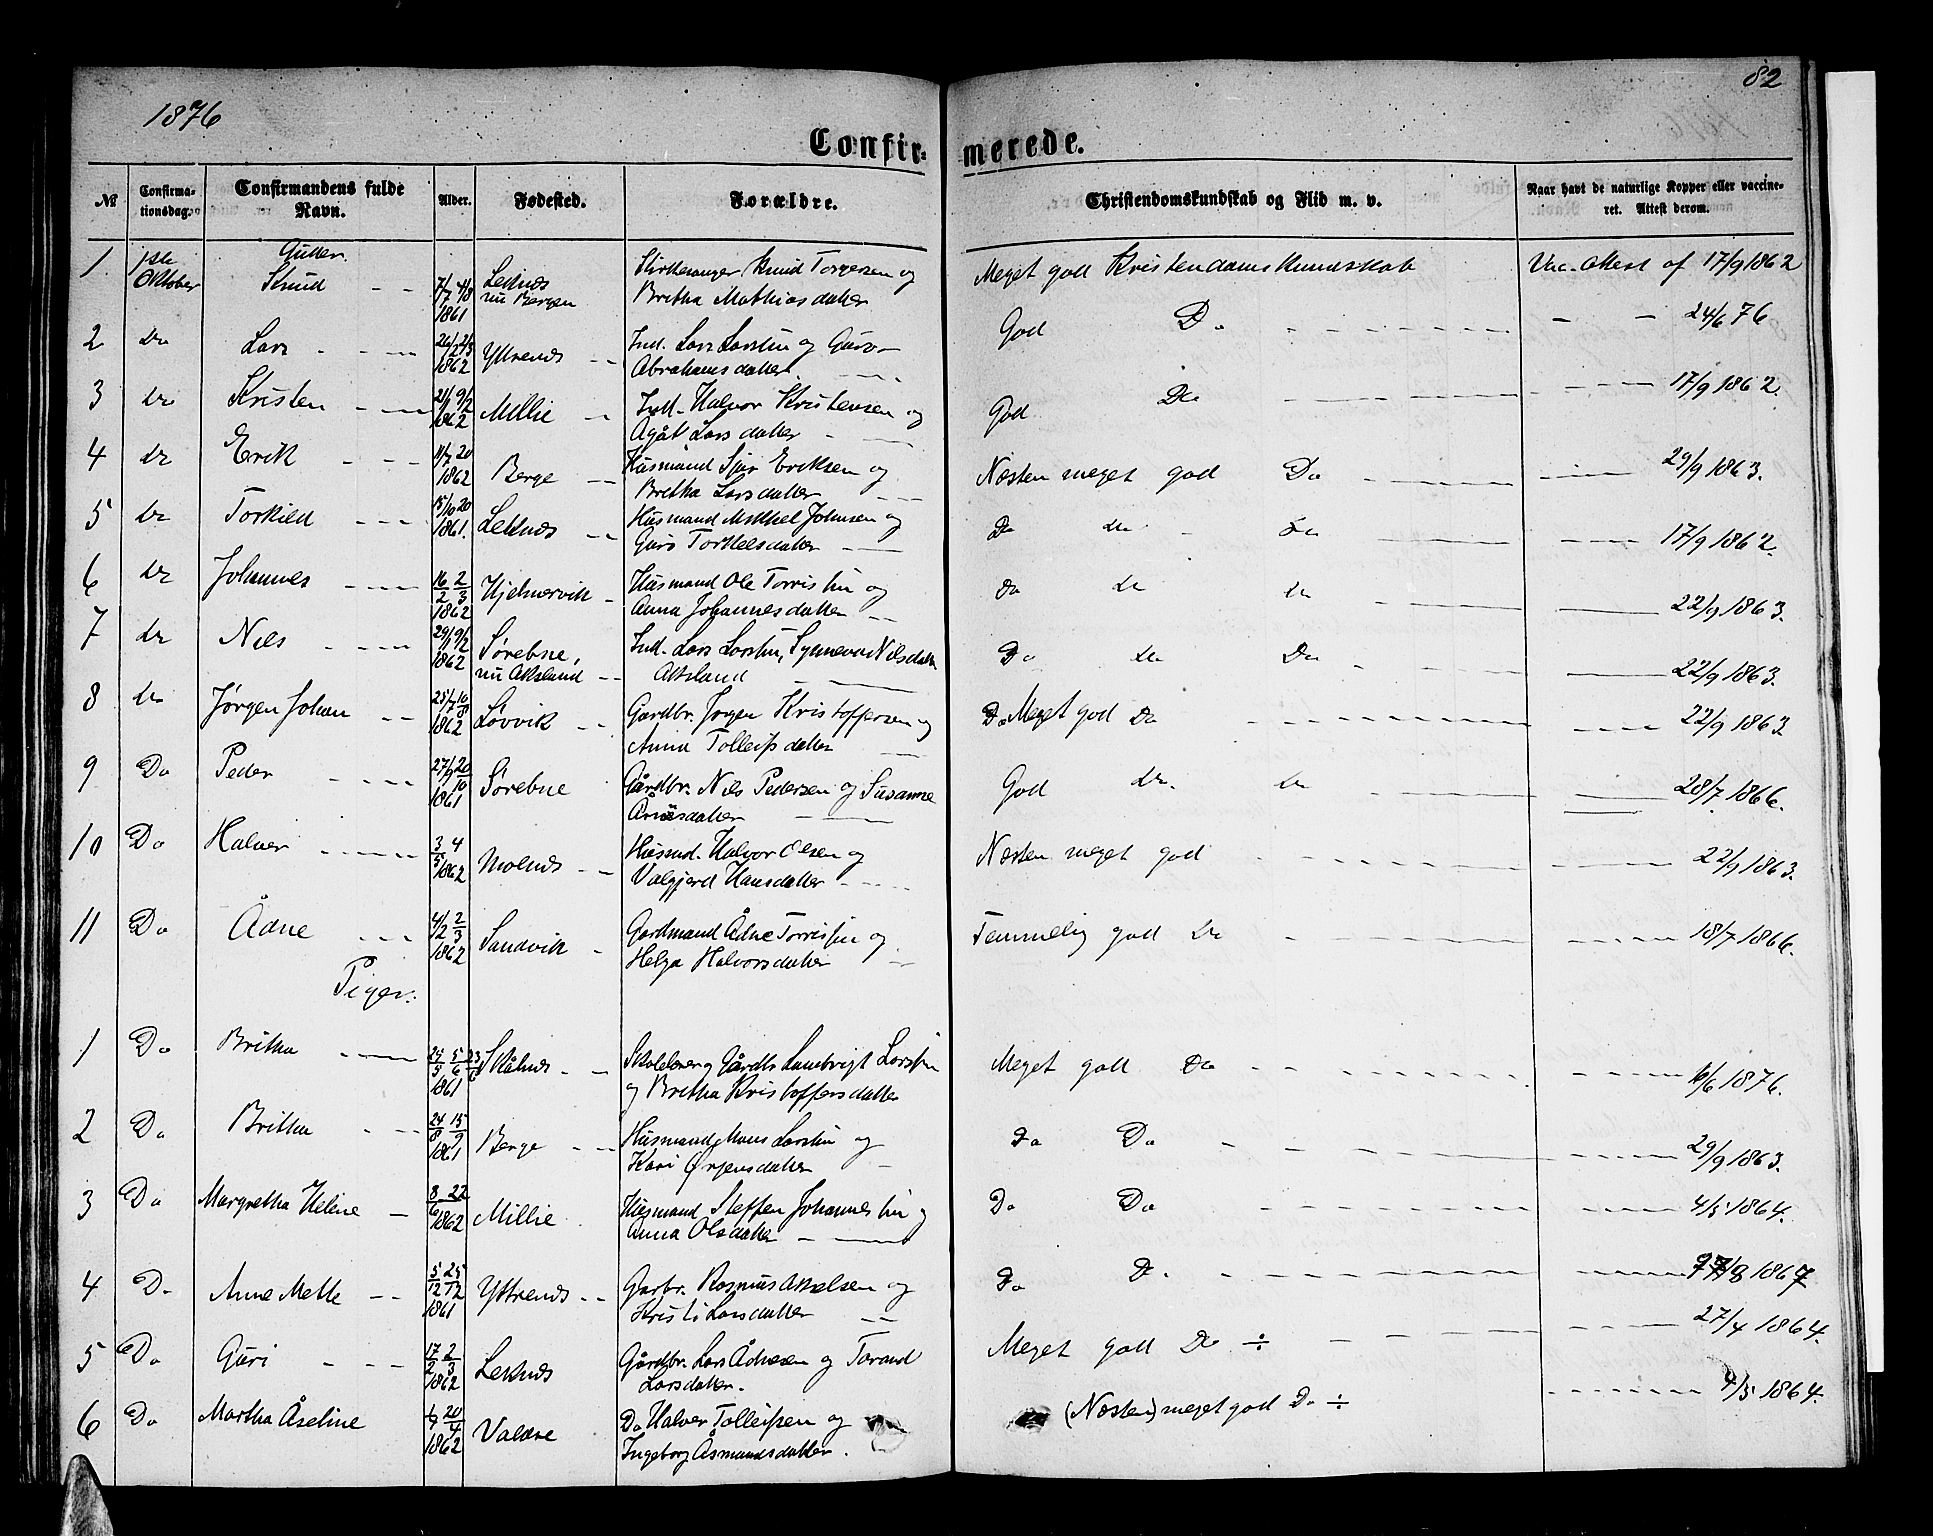 1876
82
Confir- merede.
№ Confirma-tionsdag. Confirmandens fulde Navn. Alder. Fødested. Forældre. Christendomskundskab og Flid m. v. Naar havt de naturlige Kopper eller vaccine-ret. Attest derom.
Gutter.
1 1ste Oktober Knud 1861 Leknæs nu Bergen Kirkesanger Knud Torgersen og Bretha Mathiasdatter Meget god Kristendomskundskab Vac. Attest af 17/9 1862
2 do Lars 1862 Yttrenæs Ind. Lars Larssen og Guro Abrahamsdatter God Do 24/6 76
3 do Kristen 1862 Millie Ind. Halvor Kristensen og Agåt Larsdatter God Do 17/9 1862.
4 do Erik 1862 Berge Husmand Sjur Eriksen og Bretha Larsdatter Næsten meget god Do 29/9 1863.
5 do Torkild 15/10 20 1861. Leknæs Husmand Mikkel Johnsen og Guro Torkelsdatter Do do do 17/9 1862.
6 do Johannes 16/2 2/3 1862 Hjelmervik Husmand Ole Torrissen og Anna Johannesdatter Do do do 22/9 1863.
7 do Nils 29/1 9/2 1862 Sørebne, nu Aksland Ind. Lars Larssen, Synneva Nilsdatter Aksland Do do Do 22/9 1863.
8 do Jørgen Johan 25/7 10/8 1862 Løvvik Gardbr. Jørgen Kristoffersen og Anna Tolleifsdatter Do Meget god Do 22/9 1863
9 Do Peder 27/9 20/10 1861 Sørebne Gårdbr. Nils Pedersen og Susanne Arnesdatter God do. do 28/7 1866.
10 Do Halvor 3/5 4 1862 Molnæs Husmd. Halvor Olsen og Valgjerd Hansdatter Næsten meget god 22/9 1863.
11 Do Ådne 4/2 2/3 1862 Sandvik Gardmand Ådne Torrissen og Helga Halvorsdatter Temmelig god Do 18/7 1866.
Piger.
1 Do Britha 25/5 5/6 23/6 1861 Skålnæs Skolelærer og Gårdbr. Lambrigt Larssen og Bretha Kristoffersdatter Meget god Do 16/6 1876.
2 Do Britha 24/8 15/9 1861 Berge Husmand Mons Larssen og Kari Ørjensdatter Do Do 29/9 1863.
3 Do Margretha Helene 8/6 22 1862 Millie Husmand Steffen Johannessen og Anna Olsdatter Do Do 4/5 1864.
4 Do Anne Mette 5/12 25/12 1861 Yttrenæs Garbr. Rasmus Akselsen og Kristi Larsdatter Do Do 1867
5 Do Guri 17/2 2/3 1862 Leknæs Gårdbr. Lars Ådnesen og Torand Larsdatter. Meget god Do ÷ 27/4 1864.
6 Do Martha Åseline 20/4 1862 Valdre Do Halvor Tolleifsen og Ingeborg Åsmundsdatter. (Næsten) meget god Do ÷ 4/5 1864.